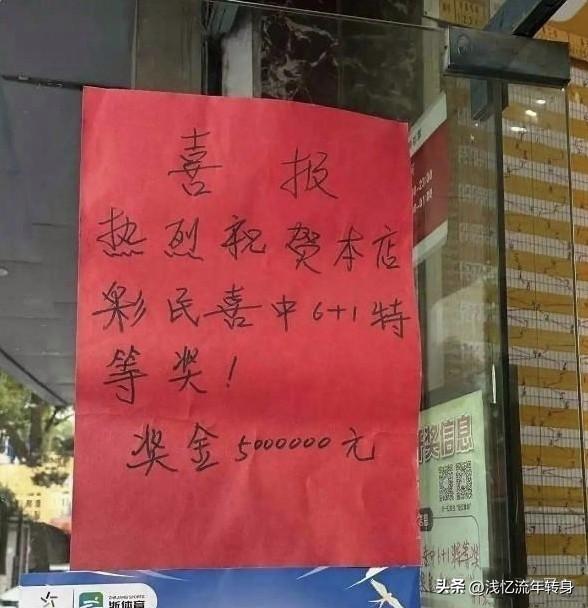 喜报
热烈祝贺本店
彩民喜中6+1特
等奖!
奖金5000000元
奖信息
中6+1特等奖
浙体育
头条 @浅忆流年转身